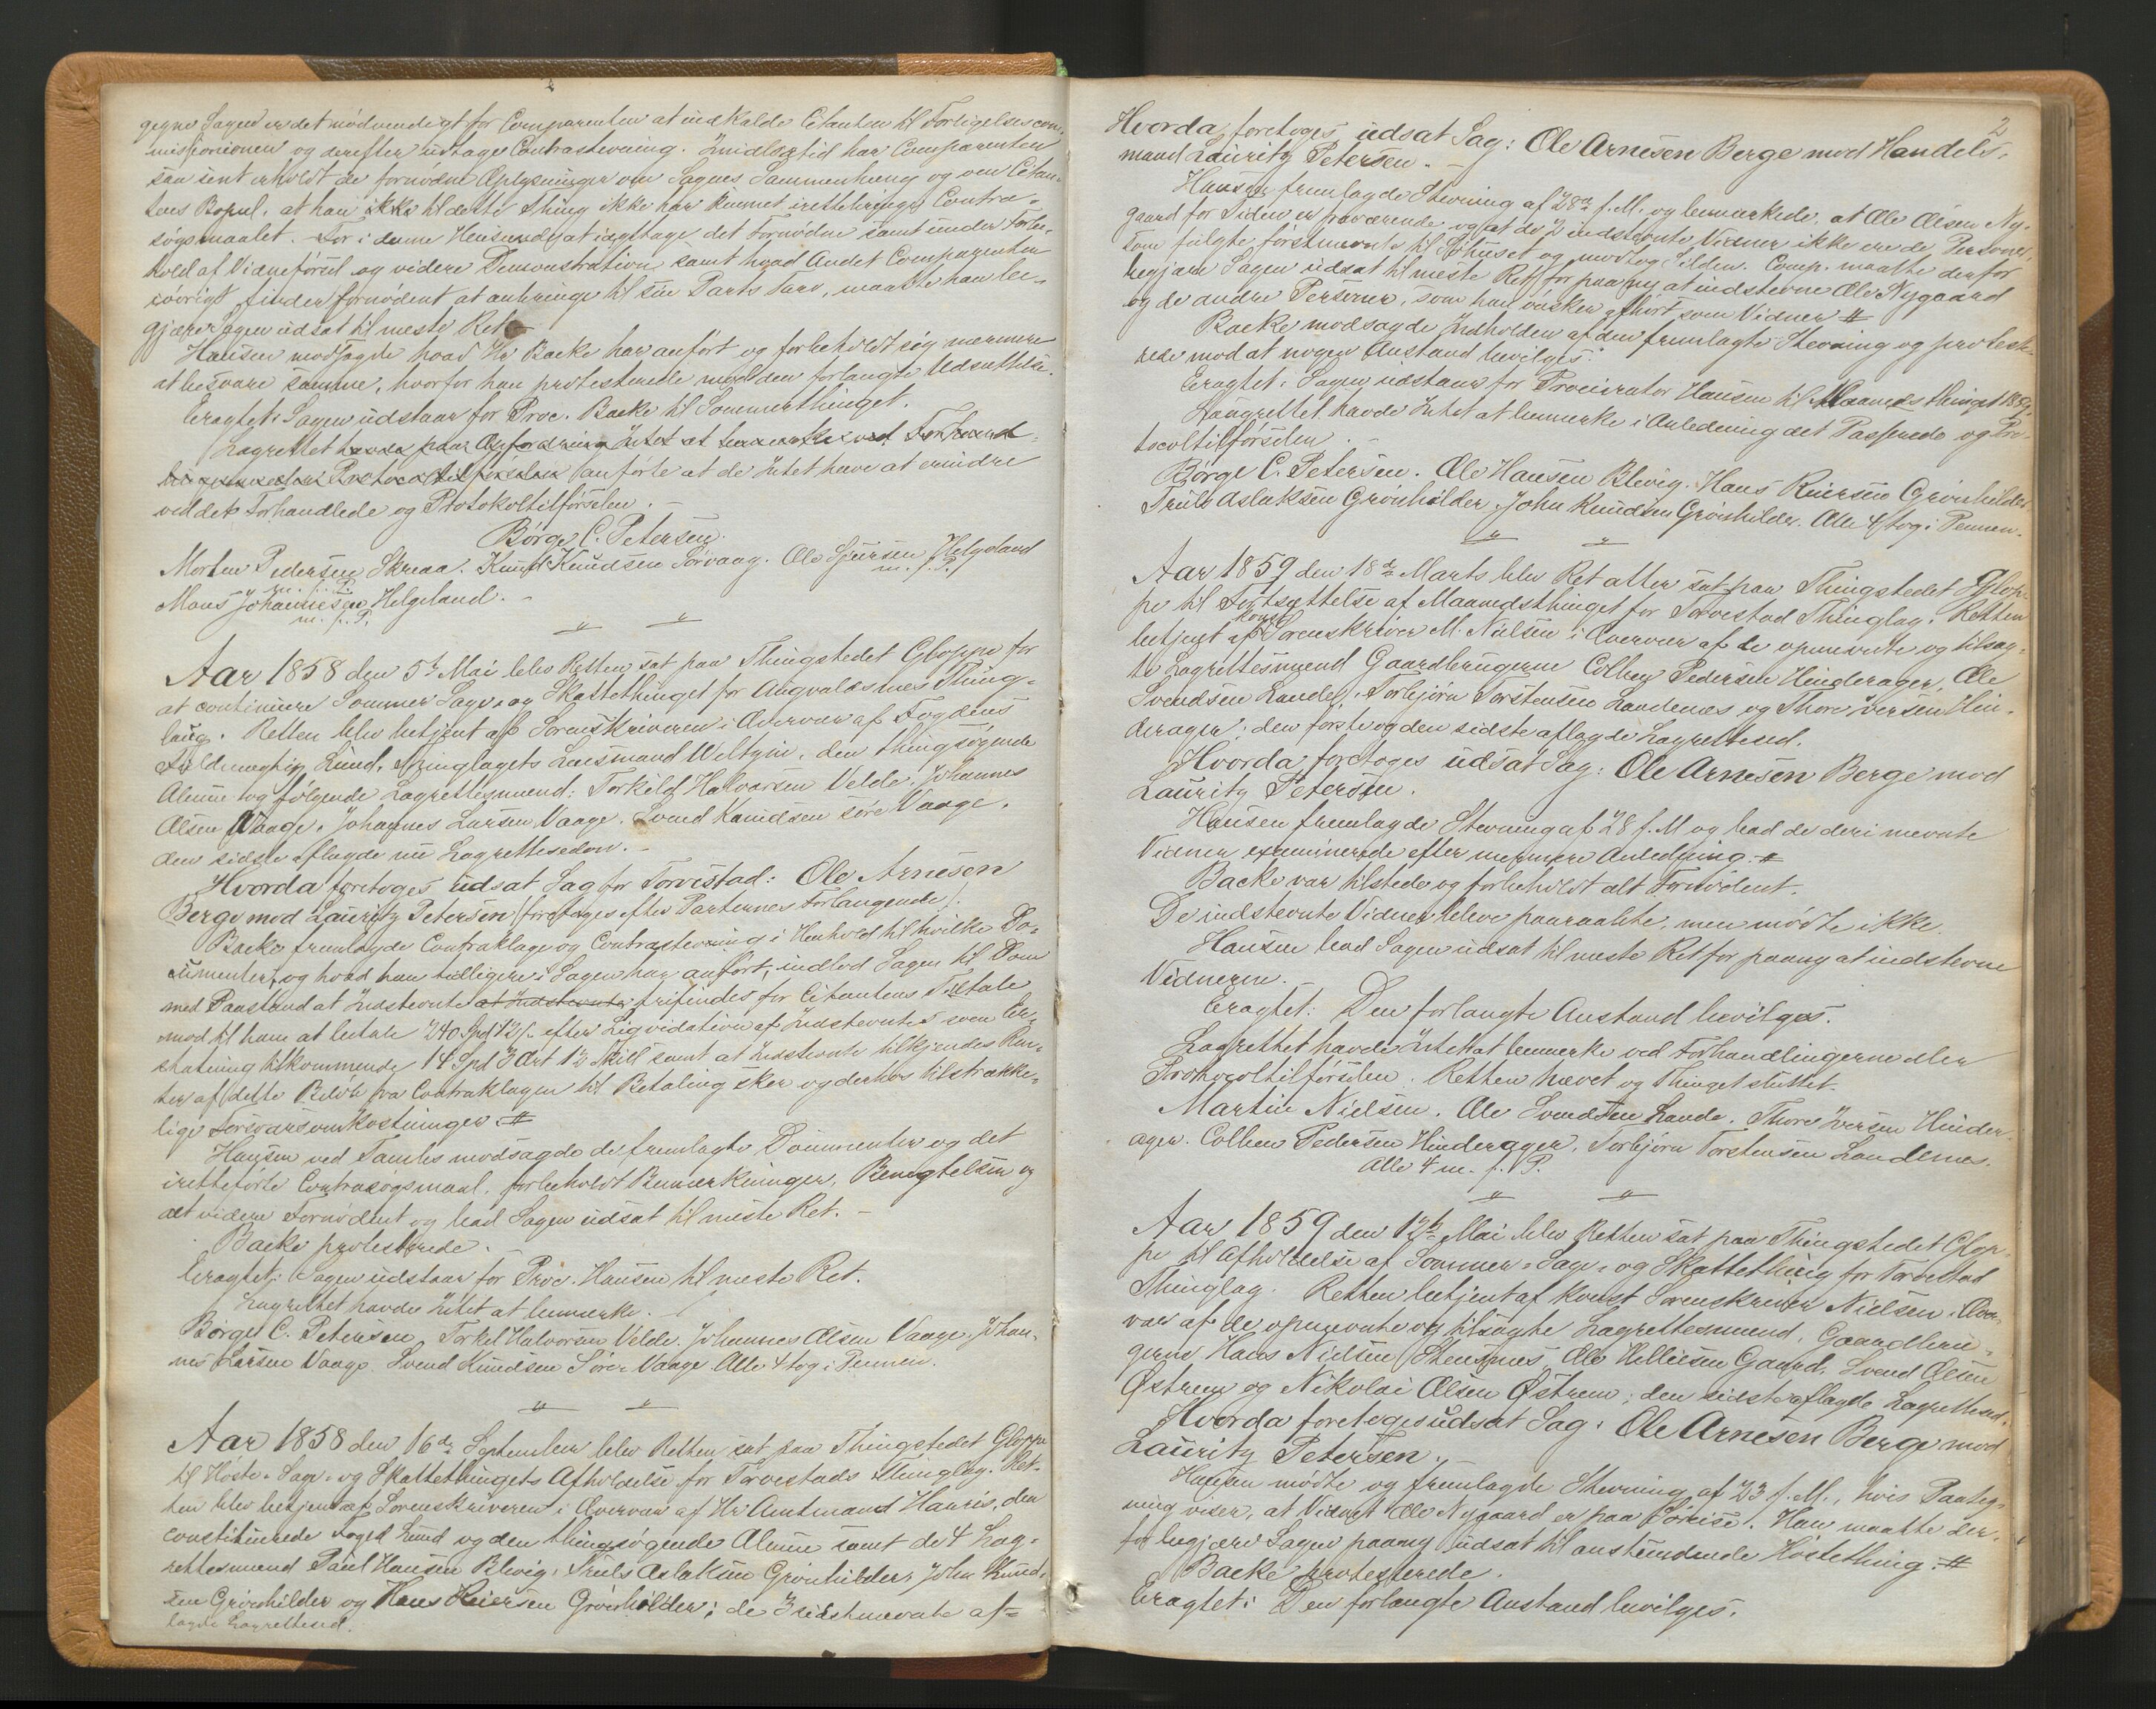 gegne Sagen er det nødvendigt for Comparenten at indkalde Citanten til Forligelsescom-
missionen og derefter udtage Contrastevning. Imidlertid har Comparenten
saa sent erholdt de fornødne Oplysninger om Sagens Sammenhæng og om Citan-
tens Bopæl, at han ikke til dette Thing ikke har kunnet irettebringe Contra-
søgsmaalet. For i denne Henseende at iagttage det Fornødne samt under Forbe-
hold af Vidneførsel og videre Demonstration samt hvad Andet Comparenten
iøvrigt finder fornødent at anbringe til sin Parts Tarv, maatte han be-
gjære Sagen udsat til næste Ret
Hansen modsagde hvad Hr Backe har anført og forbeholdt sig nærmere
at besvare samme, hvorfor han protesterede mod den forlangte Udsættelse.
Eragtet: Sagen udstaar for Proc. Backe til Sommerthinget.
Lagrettet havde paa Anfordring Intet at bemærke ved Forhand-
lingerne eller Protocoltilførselen anførte at de Intet have at erindre
ved det Forhandlede og Protokoltilførselen. –
Børge C. Petersen.
Morten Pedersen Skreaa. Knud Knudsen Sørvaag. Ole Sjursen Helgeland
m. f. P. m. f. P.
Mons Johannesen Helgeland. –
m. f. P.
Aar 1858 den 5te Mai blev Retten sat paa Thingstedet Gloppe for
at continuere Sommer Sage- og Skattethinget for Augvaldsnes Thing-
laug. Retten blev betjent af Sorenskriveren i Overvær af Fogdens
Fuldmægtig Lund, Thinglagets Lænsmand Weltzin, den thingsøgende
Almue og følgende Lagrettesmænd: Torkild Halvorsen Velde, Johannes
Olsen Vaage, Johannes Larsen Vaage, Svend Knudsen søre Vaage,
den sidste aflagde nu Lagretteseden. –
Hvorda foretoges udsat Sag for Torvestad: Ole Arnesen
Berge mod Lauritz Petersen (foretages efter Parternes Forlangende).
Backe fremlagde Contraklage og Contrastevning i Henhold til hvilke Do-
cumenter, og hvad han tidligere i Sagen har anført, indlod Sagen til Dom
med Paastand at Indstevnte at Indstevnte frifindes for Citantens Tiltale
mod til ham at betale 240 Spd 12 s. efter Ligvidation af Indstevntes som Er-
statning tilkommende 14 Spd 3 Ort 12 Skill samt at Indstevnte tilkjendes Ren-
ter af dette Beløb fra Contraklagen til Betaling sker og derhos tilstrække-
lige Forsvarsomkostninger. #
Hansen ved Tamles modsagde de fremlagte Documenter og det
iretteførte Contrasøgsmaal, forbeholdt Bemærkninger, Benegtelsen og
alt videre Fornødent og bad Sagen udsat til næste Ret. –
Backe protesterede.
Eragtet: Sagen udstaar for Proc. Hansen til næste Ret.
Lagrettet havde Intet at bemærke.
Børge C. Petersen, Torkel Halvorsen Velde. Johannes Olsen Vaage, Johan-
nes Larsen Vaage. Svend Knudsen Søre Vaage Alle 4 tog i Pennen.
Aar 1858 den 16de September blev Retten sat paa Thingstedet Gloppe
til Høste- Sage- og Skattethingets Afholdelse for Torvestads Thinglag. Ret-
ten blev betjent af Sorenskriveren i Overvær af Hr Amtmand Hauris, den
constituerede Foged Lund og den thingsøgende Almue samt de 4 Lag-
rettesmænd Paul Hansen Blevig, Truls Aslaksen Grønhilder, John Knud-
sen Grønhilder og Hans Reiersen Grønhilder; de 3 sidstnævnte af-
lagde Lagrettesed.
2
Hvorda foretoges udsat Sag: Ole Arnesen Berge mod Handels-
mand Lauritz Petersen. –
Hansen fremlagde Stevning af 28de f. M. og bemærkede, at Ole Olsen Ny-
gaard for Tiden er fraværende, og at de 2 indstevnte Vidner ikke ere de Personer,
som fulgte førstnævnte til Søhuset og modtog Silden. Comp. maatte derfor
begjære Sagen udsat til næste Ret for paany at indstevne Ole Nygaard
og de andre Personer, som han ønsker afhørt som Vidner #
Backe modsagde Indholden af den fremlagte Stevning og protest-
rede mod at nogen Anstand bevilges.
Eragtet: Sagen udstaar for Procurator Hansen til Maanedsthinget 1859.
Laugrettet havde Intet at bemærke i Anledning det Passerede og Pro-
tocoltilførselen. –
Børge C. Petersen. Ole Hansen Blevig. Hans Reiersen Grønhilder
Truls Aslaksen Grønhilder, John Knudsen Grønhilder. Alle 4 tog i Pennen.
Aar 1859 den 18de Marts blev Ret atter sat paa Thingstedet Glop-
pe til Fortsættelse af Maanedsthinget for Torvestad Thinglag. Retten
betjent af const Sorenskriver M. Nielsen i Overvær af de opnævnte og tilsag-
te Lagrettesmænd Gaardbrugerne Colben Pedersen Hinderager, Ole
Svendsen Lande, Torbjørn Torstensen Landenæs og Thore Iversen Hin-
derager; den første og den sidste aflagde Lagrettesed.
Hvorda foretoges udsat Sag: Ole Arnesen Berge mod
Lauritz Petersen.
Hansen fremlagde Stevning af 28 f. M og bad de deri nævnte
Vidner examinerede efter nærmere Anledning. #
Backe var tilstede og forbeholdt alt Fornødent.
De indstevnte Vidner bleve paaraabte, men mødte ikke.
Hansen bad Sagen udsat til næste Ret for paany at indstevne
Vidnerne.
Eragtet: Den forlangte Anstand bevilges.
Lagrettet havde Intet at bemærke ved Forhandlingerne eller
Protocoltilførselen. Retten hævet og Thinget sluttet.
Martin Nielsen. Ole Svendsen Lande. Thore Iversen Hinder-
ager. Colben Pedersen Hinderager, Torbjørn Torstensen Landenæs.
Alle 4 m. f. P.
Aar 1859 den 12te Mai blev Retten sat paa Thingstedet Glop-
pe til Afholdelse af Sommer- Sage- og Skattething for Torvestad
Thinglag. Retten betjent af const Sorenskriver Nielsen i Over-
vær af de opnævnte og tilsagte Lagrettesmænd, Gaardbru-
gerne Hans Nielsen Stensnes, Ole Helliesen Gaard, Svend Olsen
Østrem og Nikolai Olsen Østrem; den sidste aflagde Lagrettesed.
Hvorda foretoges udsat Sag: Ole Arnesen Berge mod
Lauritz Petersen. –
Hansen mødte og fremlagde Stevning af 23 f. M., hvis Paateg-
ning viser, at Vidnet Ole Nygaard er paa Søreise. Han maatte der-
for begjære Sagen paany udsat til anstundende Høstething. #
Backe protesterede.
Eragtet: Den forlangte Anstand bevilges.